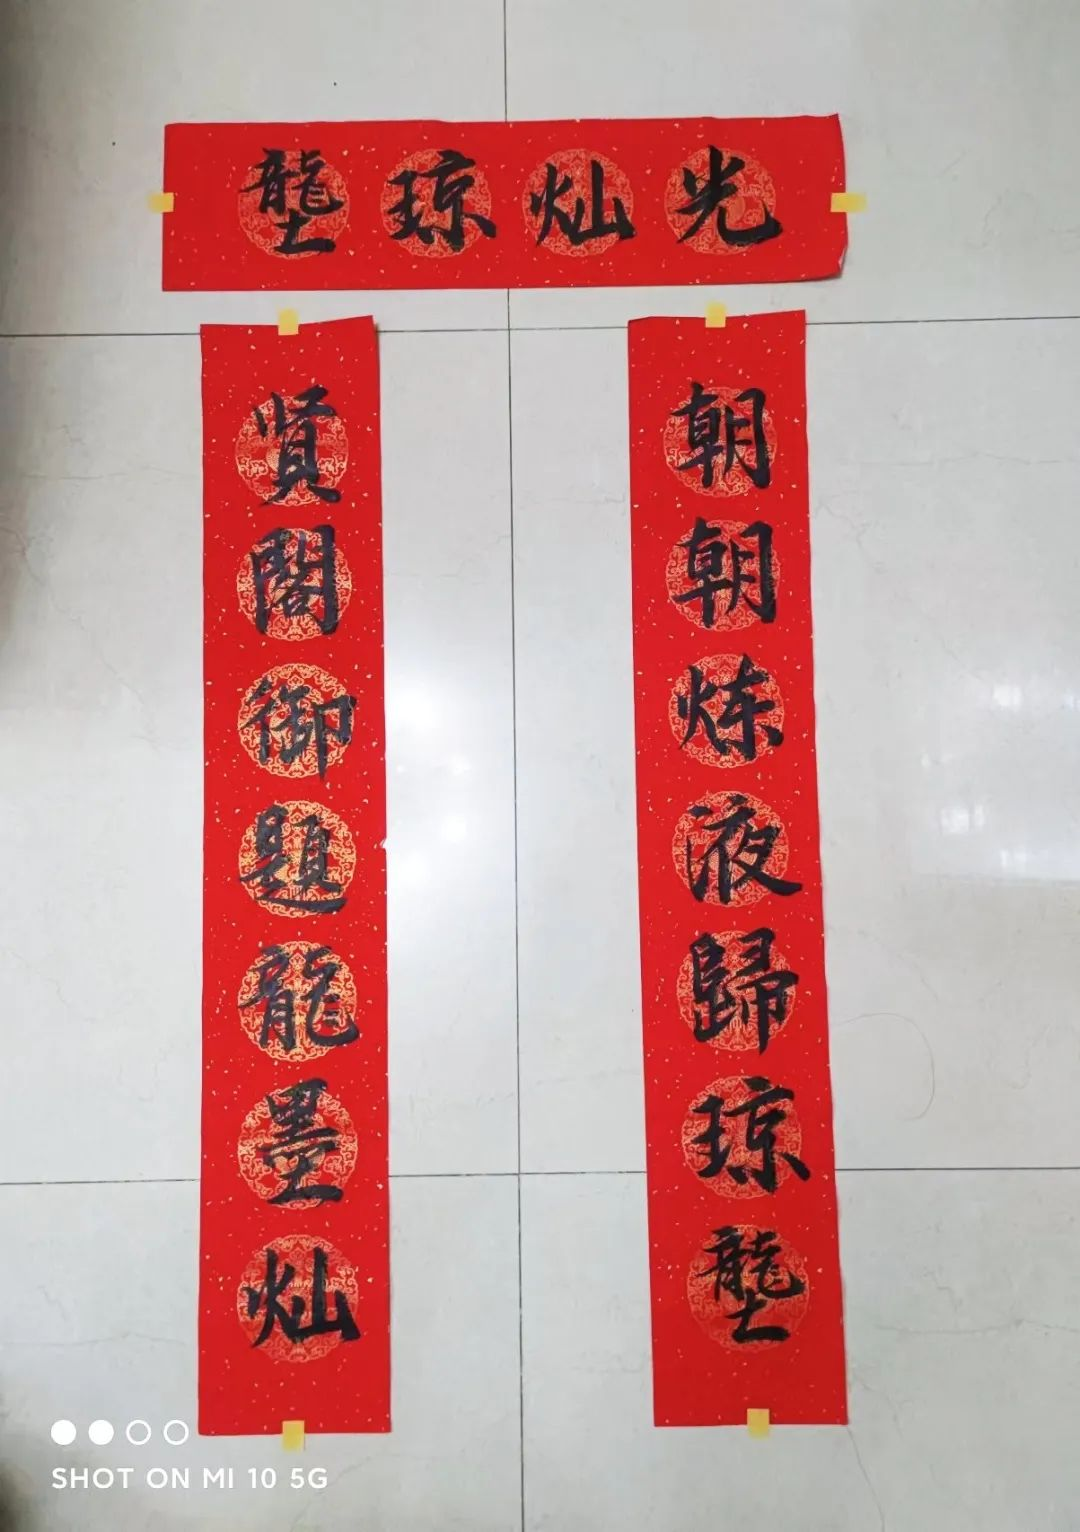 光灿琼壟
朝朝炼液歸琼壟
賢閣御題龍墨灿
SHOT ON MI 10 5G